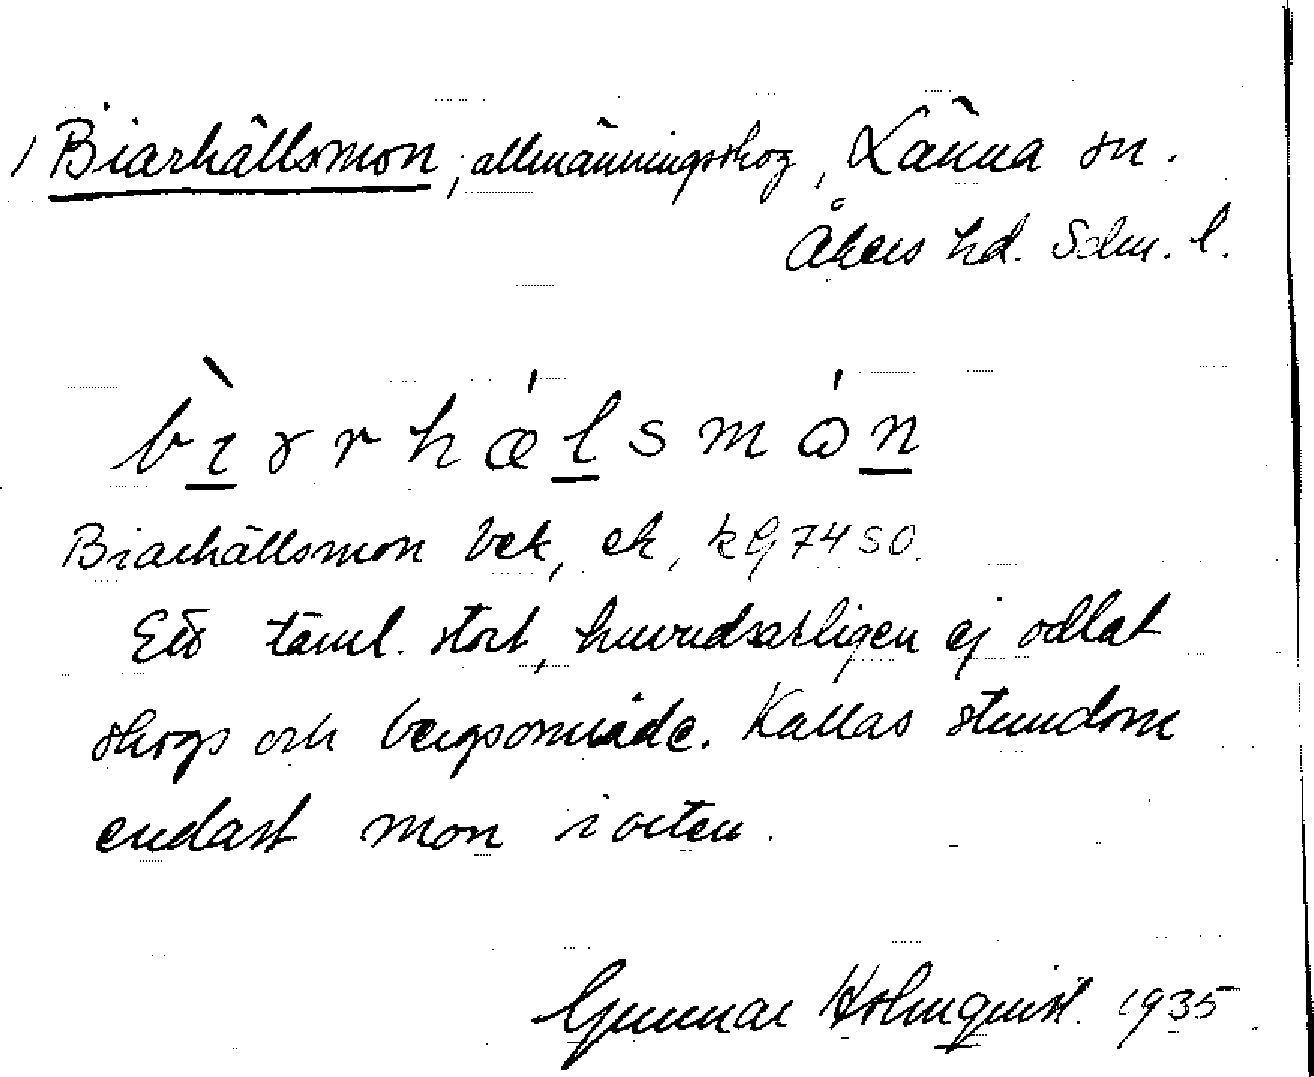 / Biarhällsmon, allmänningsskog, Länna sn.
Åkers hd. Sdm. l.
bɩ̀ɤrhǽlsmón
Biarhällsmon bek, ek, kG 74 SO.
Ett täml. stort, huvudsakligen ej odlat
skogs och bergsområde. Kallas stundom
endast mon i orten.
Gunnar Holmquist. 1935.